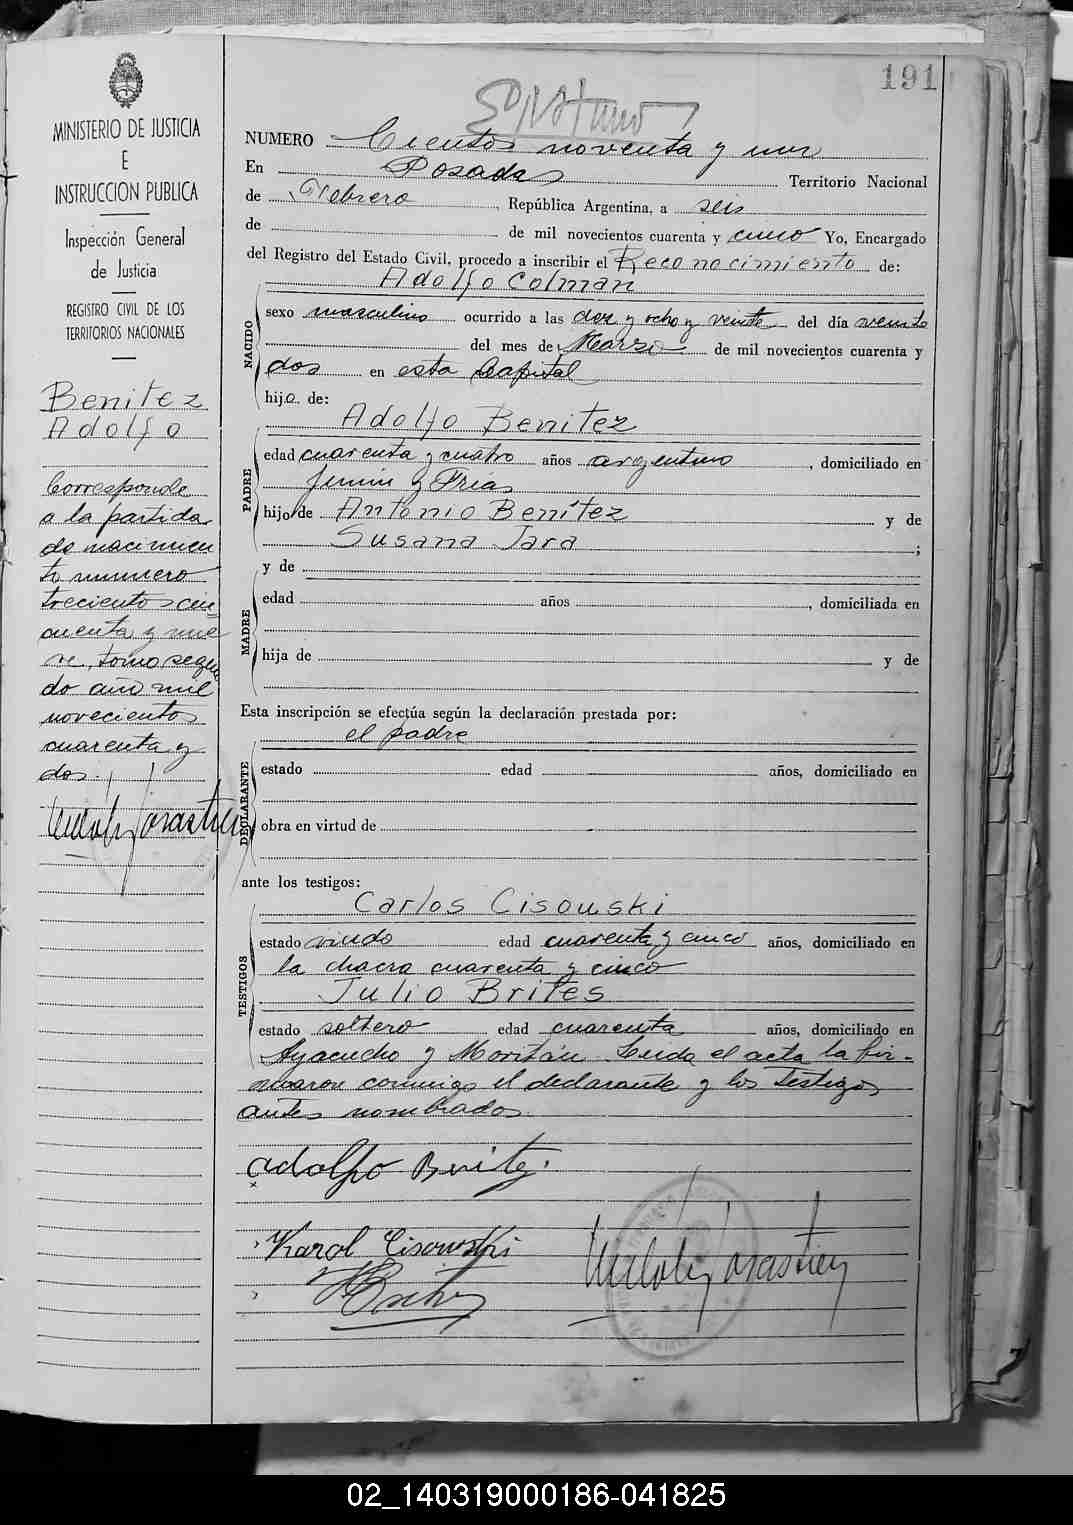 191
MINISTERIO DE JUSTICIA
E
INSTRUCCION PUBLICA
Inspección General
de Justicia
REGISTRO CIVIL DE LOS
TERRITORIOS NACIONALES
Benitez
Adolfo
Corresponde
a la partida
de nacimien
to numero
trecientos cin
cuenta y nue
ve, tomo segun
do año mil
novecientos
cuarenta y
dos.
NUMERO Cientos noventa y uno
En Posadas Territorio Nacional
de Febrero, República Argentina, a seis
de de mil novecientos cuarenta y cinco Yo, Encargado
del Registro del Estado Civil, procedo a inscribir el Reconocimiento de:
Adolfo Colman
NACIDO
sexo masculino ocurrido a las dos y ocho y veinte del día veinte
del mes de Marzo de mil novecientos cuarenta y
dos en esta Capital
hijo de:
Adolfo Benitez
PADRE
edad cuarenta y cuatro años argentino, domiciliado en
Junin y Frias
hijo de Antonio Benítez y de
Susana Jara;
MADRE
y de
edad años, domiciliada en
hija de y de
Esta inscripción se efectúa según la declaración prestada por:
el padre
DECLARANTE
estado edad años, domiciliado en
obra en virtud de
ante los testigos:
Carlos Cisowski
TESTIGOS
estado viudo edad cuarenta y cinco años, domiciliado en
la chacra cuarenta y cinco
Julio Brites
estado soltero edad cuarenta años, domiciliado en
Ayacucho y Moritán. Leida el acta la fir-
maron conmigo el declarante y los testigos
antes nombrados.
Adolfo Benitez.
Karol Cisowski
02_140319000186-041825